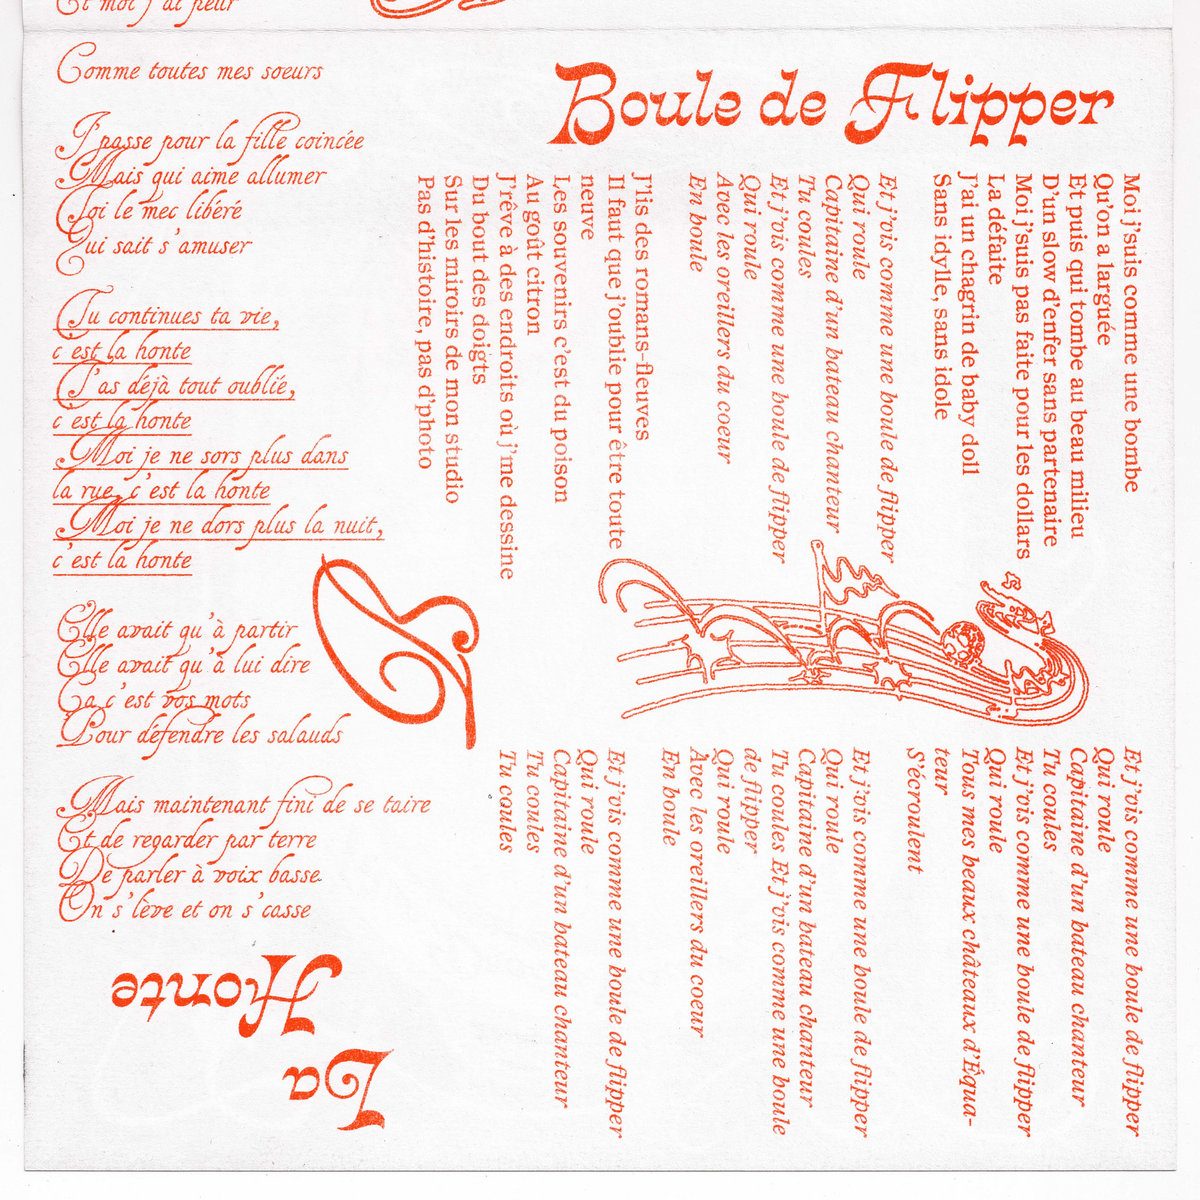 Et moi j'ai peur
Comme toutes mes soeurs
J'passe pour la fille coincée
Mais qui aime allumer
Toi le mec libéré
Qui sait s'amuser
Tu continues ta vie,
c'est la honte
T'as déjà tout oublié,
c'est la honte
Moi je ne sors plus dans
la rue, c'est la honte
Moi je ne dors plus la nuit,
c'est la honte
Elle avait qu'à partir
Elle avait qu'à lui dire
Ça c'est vos mots
Pour défendre les salauds
Mais maintenant fini de se taire
Et de regarder par terre
De parler à voix basse
On s'lève et on s'casse
La
Honte
Boule de Flipper
Moi j'suis comme une bombe
Qu'on a larguée
Et puis qui tombe au beau milieu
D'un slow d'enfer sans partenaire
Moi j'suis pas faite pour les dollars
La défaite
J'ai un chagrin de baby doll
Sans idylle, sans idole
Et j'vis comme une boule de flipper
Qui roule
Capitaine d'un bateau chanteur
Tu coules
Et j'vis comme une boule de flipper
Qui roule
Avec les oreillers du coeur
En boule
J'lis des romans-fleuves
Il faut que j'oublie pour être toute
neuve
Les souvenirs c'est du poison
Au goût citron
J'rêve à des endroits où j'me dessine
Du bout des doigts
Sur les miroirs de mon studio
Pas d'histoire, pas d'photo
Et j'vis comme une boule de flipper
Qui roule
Capitaine d'un bateau chanteur
Tu coules
Et j'vis comme une boule de flipper
Qui roule
Tous mes beaux châteaux d'Équa-
teur
S'écroulent
Et j'vis comme une boule de flipper
Qui roule
Capitaine d'un bateau chanteur
Tu coules Et j'vis comme une boule
de flipper
Qui roule
Avec les oreillers du coeur
En boule
Et j'vis comme une boule de flipper
Qui roule
Capitaine d'un bateau chanteur
Tu coules
Tu coules